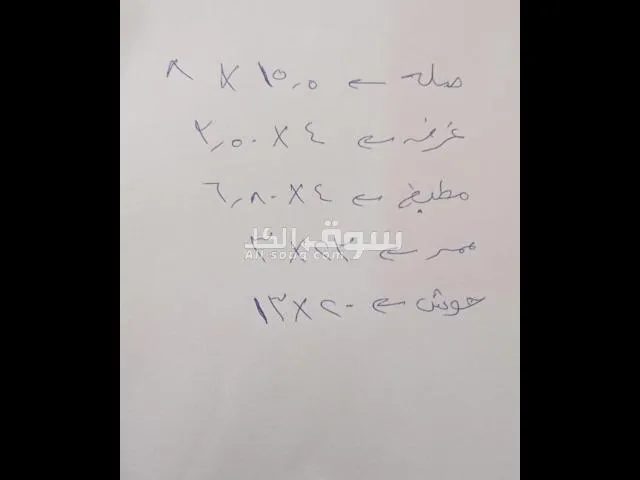 صاله ← ١٥,٥ X ٨
غرفه ← ٤ X ٢,٥٠
مطبخ ← ٤ X ٦,٨٠
ممر ←
حوش ← ٢٠ X ١٣
سوق الكل
All-souq.com